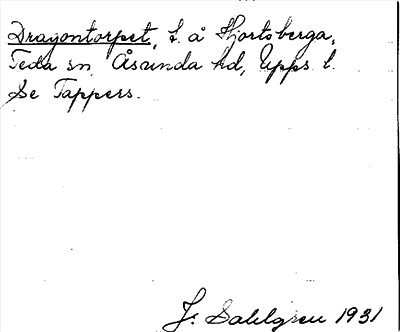 Dragontorpet, t. å Hjortsberga,
Teda sn, Åsunda hd, Upps. l.
Se Tappers.
J. Sahlgren 1931